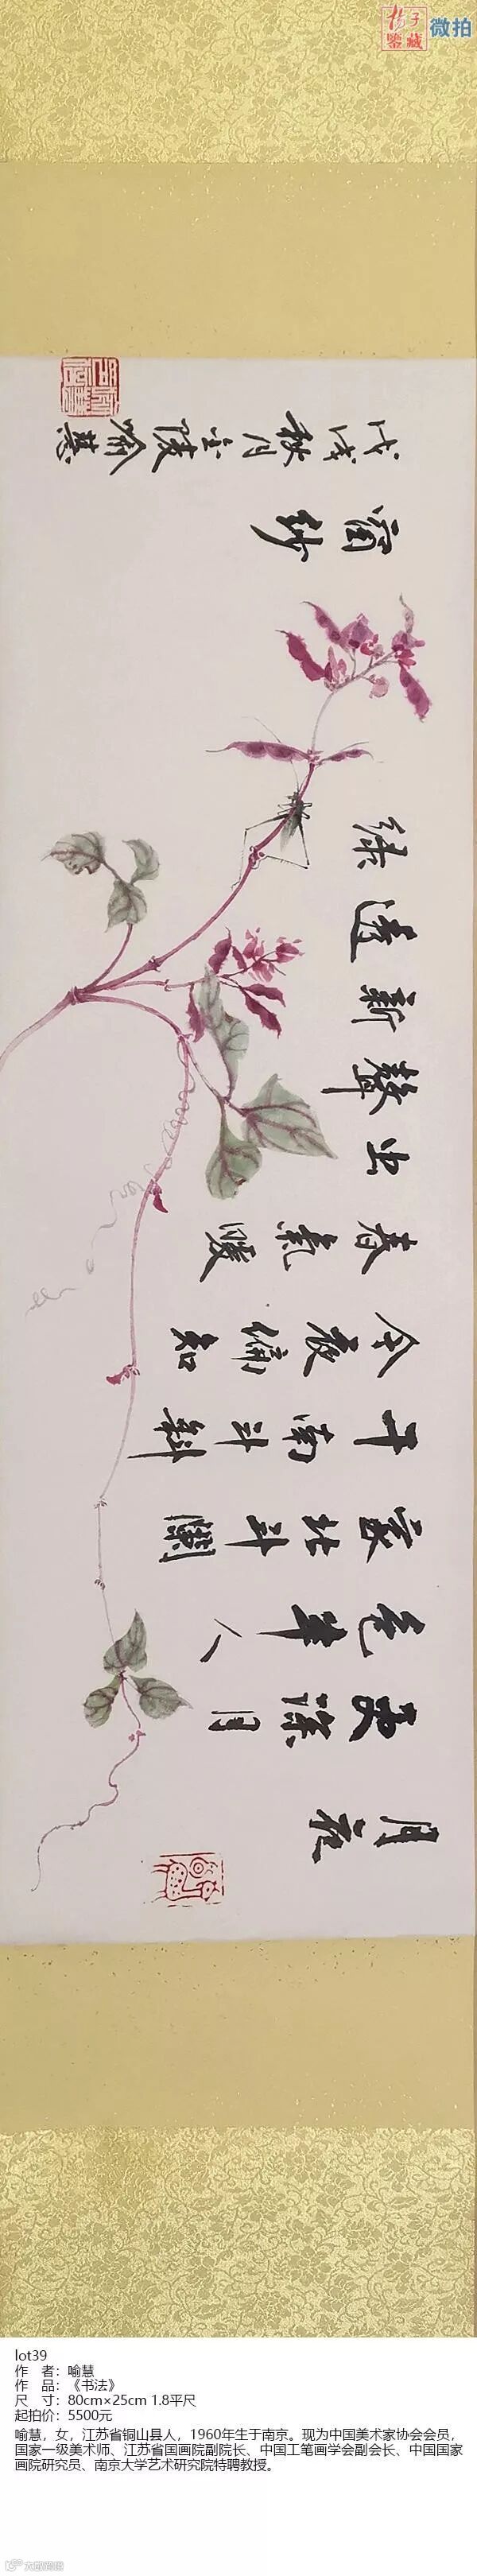 扬子
鑒藏
微拍
月夜
更深月
色半人
家北斗闌
干南斗斜
今夜偏知
春氣暖
虫
聲
新
透
綠
窗紗
戊戌秋月金陵喻慧
lot39
作　者：喻慧
作　品：《书法》
尺　寸：80cm×25cm 1.8平尺
起拍价：5500元
喻慧，女，江苏省铜山县人，1960年生于南京。现为中国美术家协会会员，
国家一级美术师、江苏省国画院副院长、中国工笔画学会副会长、中国国家
画院研究员、南京大学艺术研究院特聘教授。